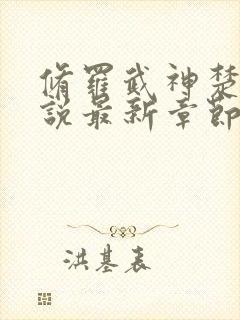 脩羅武神楚
說最新章節
洪基表